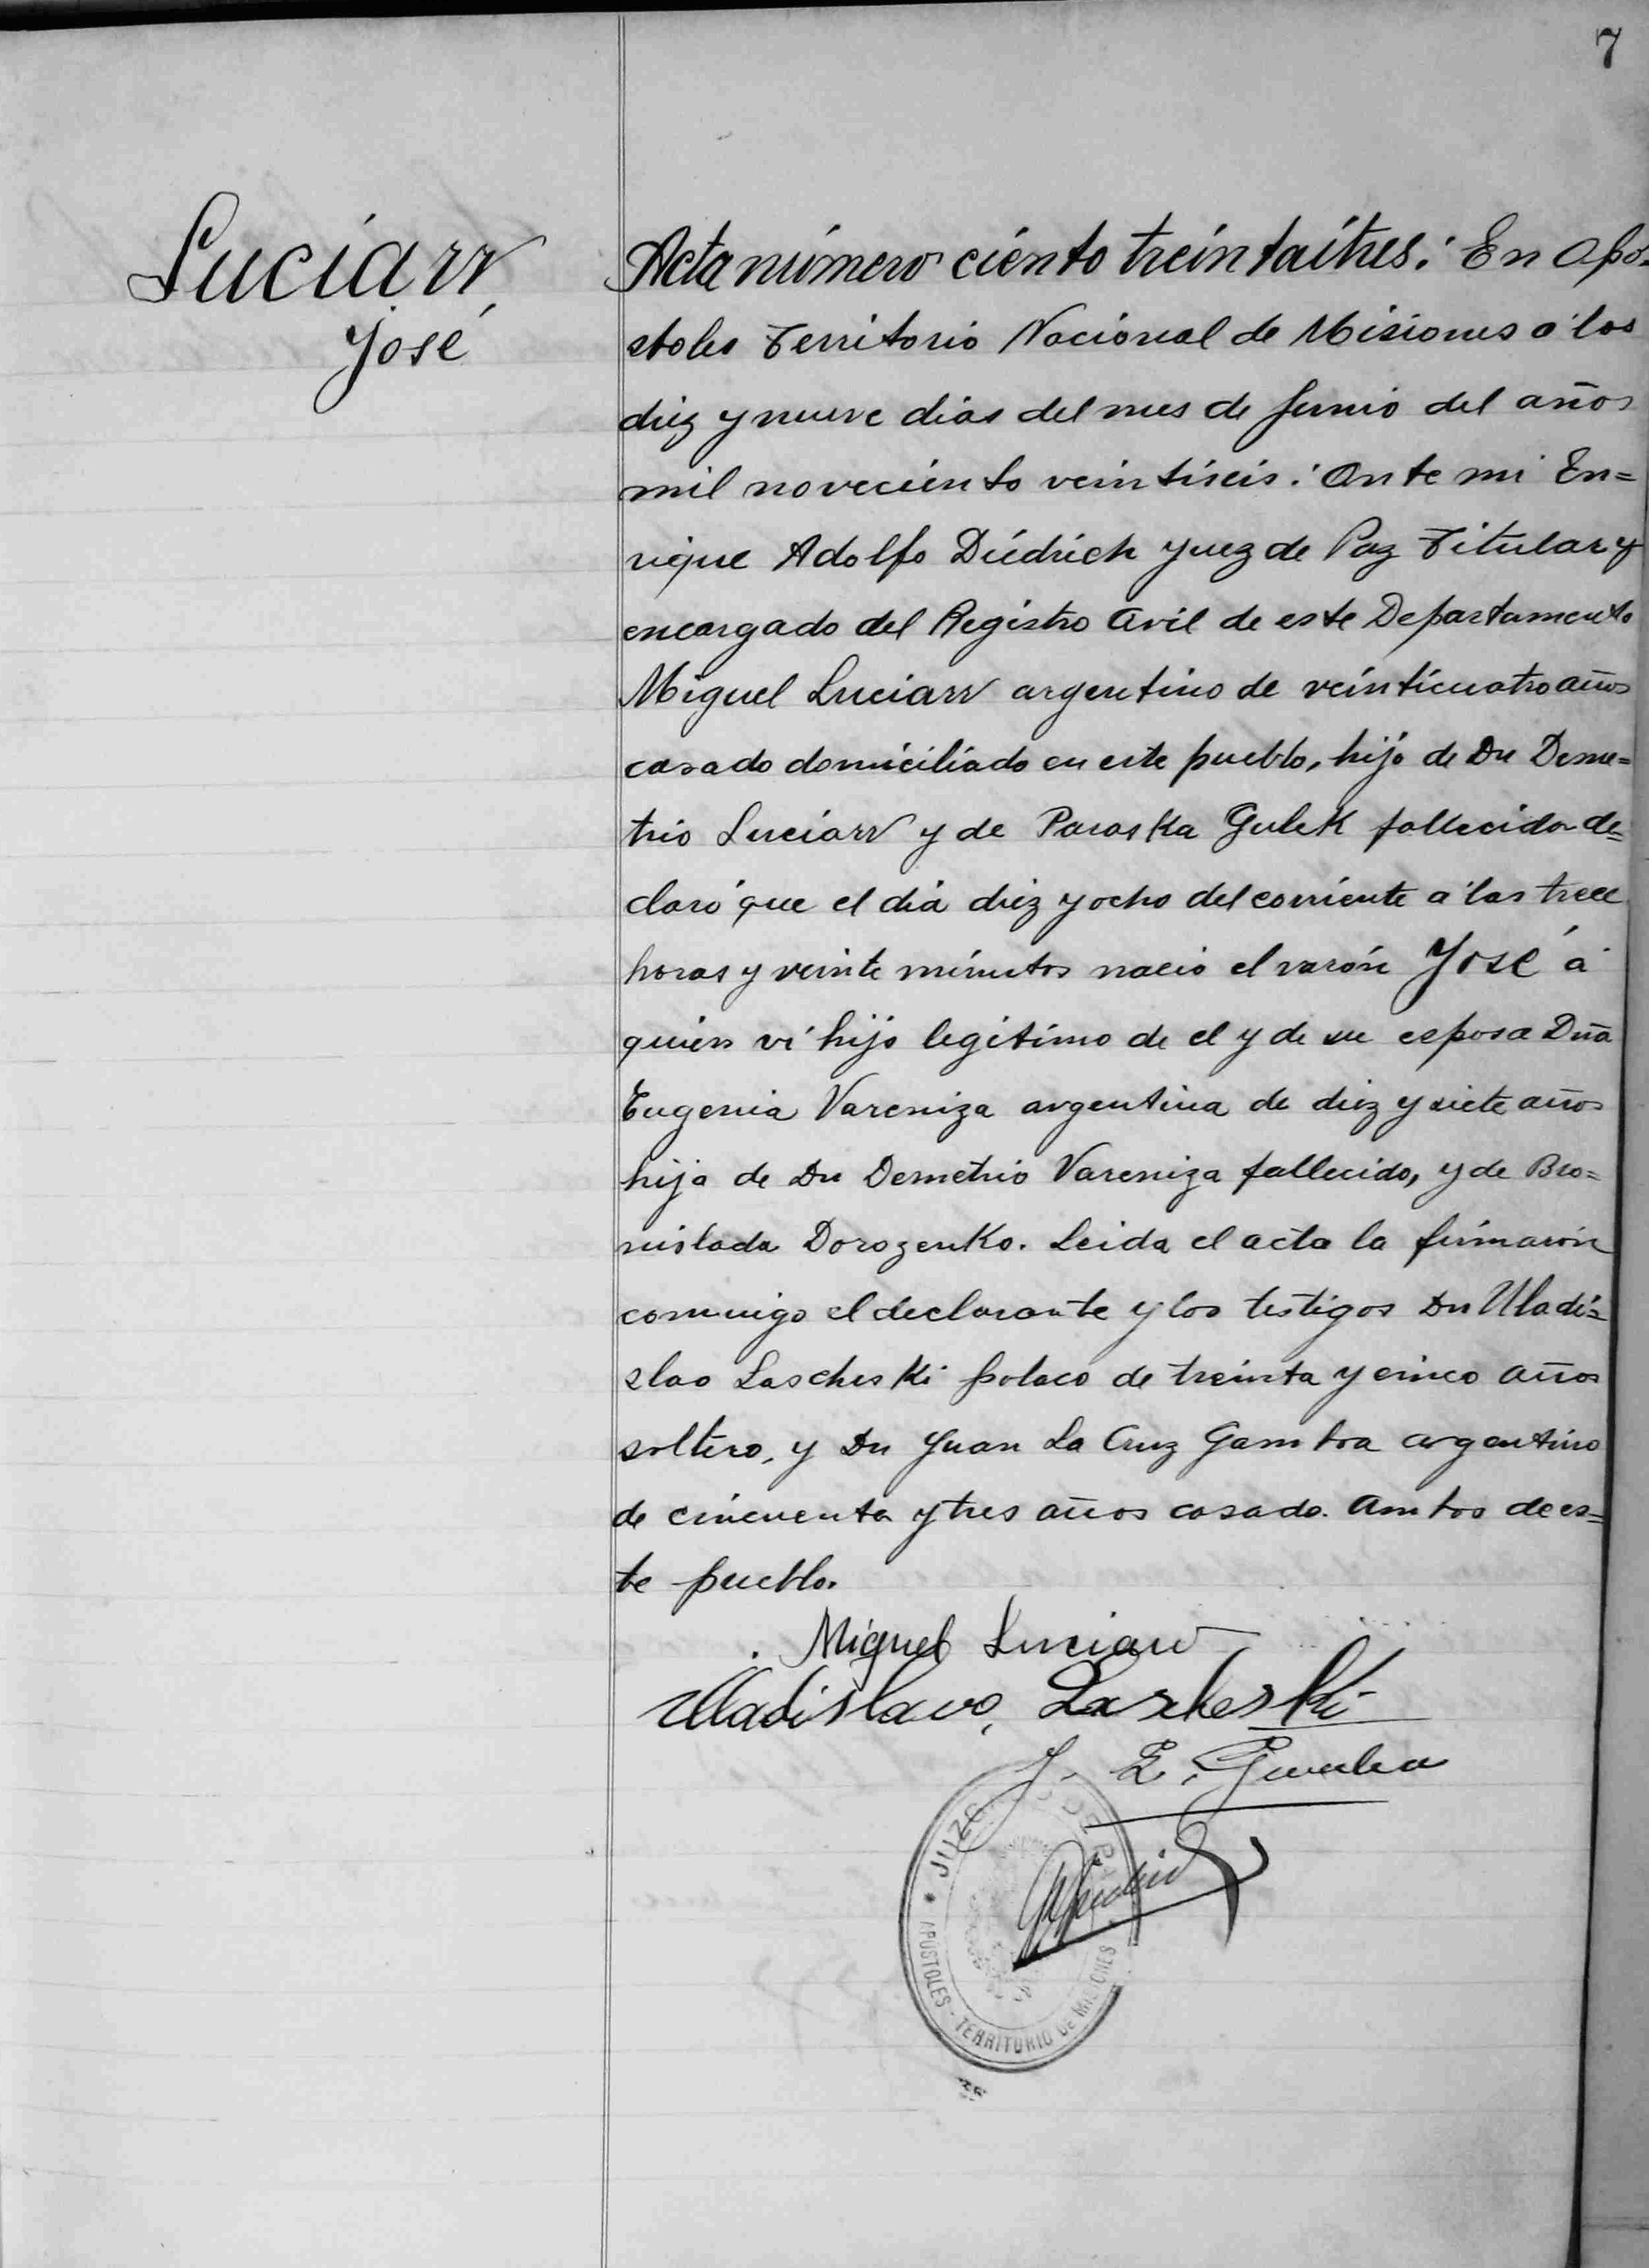 7
Luciarr
José
Acta número ciento treintaitres: En Apó-
stoles Territorio Nacional de Misiones a' los
diez y nueve dias del mes de Junio del años
mil noveciento veintiseis: Ante mi En=
rique Adolfo Diedrich Juez de Paz Titular y
encargado del Registro Civil de este Departamento
Miguel Luciarr argentino de veinticuatro años
casado domiciliado en este pueblo, hijo de Dn Deme=
trio Luciarr y de Paraska Gulek fallecida de=
claró que el día diez y ocho del corriente a' las trece
horas y veinte minutos nació el varón José á
quien ví hijo legitimo de el y de su esposa Dña
Eugenia Vareniza argentina de diez y siete años
hija de Dn Demetrio Vareniza fallecido, y de Bro=
nislada Dorozenko. Leida el acta la firmarón
conmigo el declarante y los testigos Dn Uladi=
slao Lascheski polaco de treinta y cinco años
soltero, y Dn Juan La Cruz Gamboa argentino
de cincuenta y tres años casado. Ambos de es=
te pueblo.
Miguel Luciarr
Uladislavo Lascheski
J. L. Gamboa
JUZG DE PA
APOSTOLES - TERRITORIO DE MISIONES